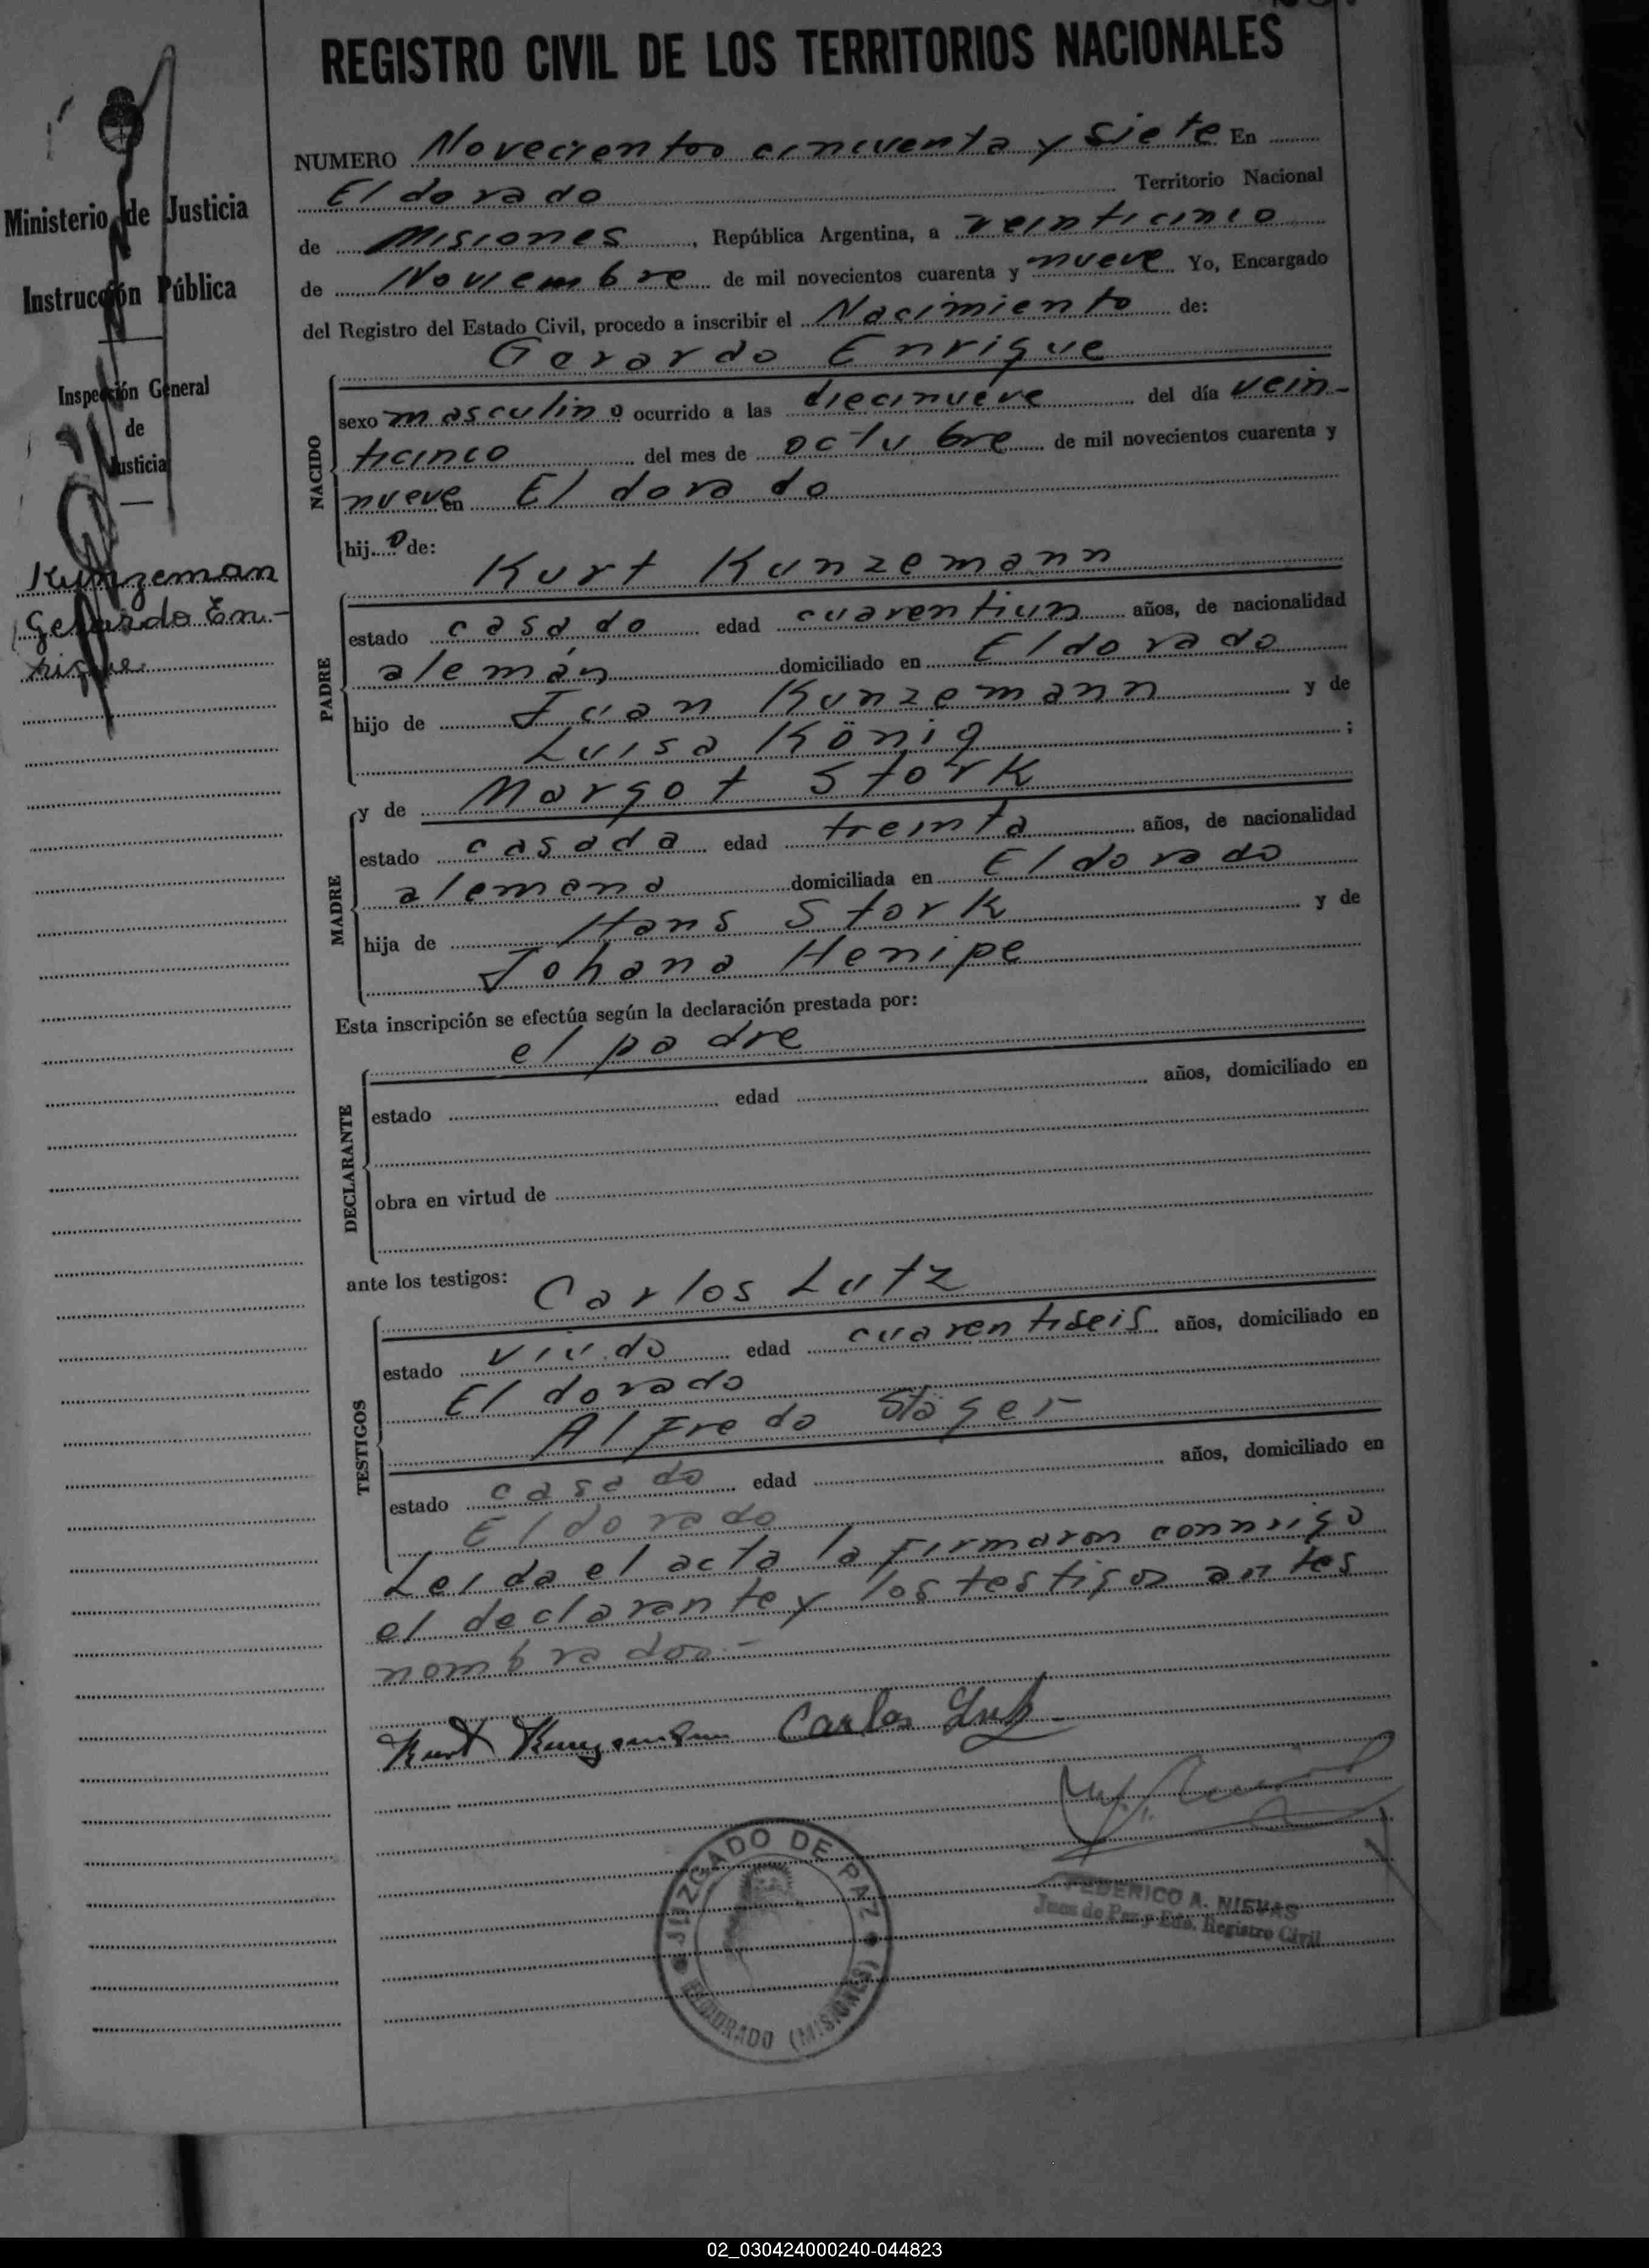 REGISTRO CIVIL DE LOS TERRITORIOS NACIONALES
Ministerio de Justicia
Instrucción Pública
Inspección General
de
Justicia
Kunzeman
Gerardo En-
rique.
NUMERO Novecientos cincuenta y siete En
Eldorado Territorio Nacional
de Misiones, República Argentina, a veinticinco
de Noviembre de mil novecientos cuarenta y nueve Yo, Encargado
del Registro del Estado Civil, procedo a inscribir el Nacimiento de:
Gerardo Enrique
NACIDO
sexo masculino ocurrido a las diecinueve del día vein-
ticinco del mes de octubre de mil novecientos cuarenta y
nueve en El dorado
hijo de:
Kurt Kunzemann
PADRE
estado casado edad cuarentiun años, de nacionalidad
alemán domiciliado en Eldorado
hijo de Juan Kunzemann y de
Luisa König ;
y de Margot Stork
MADRE
estado casada edad treinta años, de nacionalidad
alemana domiciliada en Eldorado
hija de Hans Stork y de
Johana Henipe
Esta inscripción se efectúa según la declaración prestada por:
el padre
DECLARANTE
estado edad años, domiciliado en
obra en virtud de
ante los testigos:
Carlos Lutz
TESTIGOS
estado viudo edad cuarentiseis años, domiciliado en
El dorado
Alfredo Stäger
estado casado edad años, domiciliado en
Eldorado
Leida el acta la firmaron connsigo
el declarante y los testigos antes
nombrados.-
Kurt Kunzemann Carlos Lutz
JUZGADO DE PAZ
ELDORADO (MISIONES)
FEDERICO A. NIEVAS
Juez de Paz y Edo. Registro Civil
02_030424000240-044823